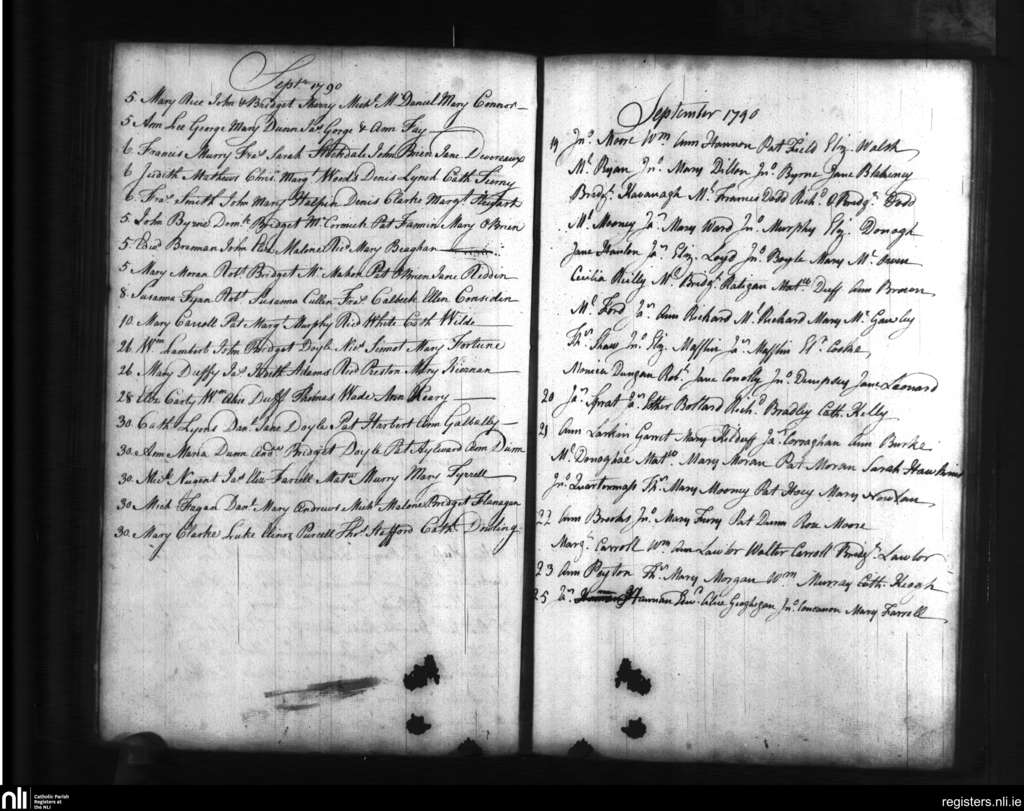 Septr 1790
5 Mary Rice John & Bridget Murry Michl McDaniel Mary Connor
5 Ann Lee George Mary Dunn Jas Gorge & Ann Fay
6 Francis Murry Fras Sarah John Brien Jane Devereaux
6 Judith Mathews Chrisr Margt Woods Denis Lynch Cath
6 Fras Smith John Mary Halpin Denis Clarke Margt
5 John Byrne Domk Bridget McCormick Pat Mary O'Brien
5 Brennan John Malone Ricd Mary Beaghan
5 Mary Moran Robt Bridget McMahon Pat O'Brien Jane Riddin
8 Susanna Ryan Robt Susanna Cullen Fras Calbeck Ellen Considin
10 Mary Carroll Pat Margt Murphy Ricd White Cath Wilde
26 Wm Lambert John Bridget Doyle Nics Sinnot Mary Fortune
26 Mary Duffy Jas Judith Adams Ricd Preston Mary Kiernan
28 Eliz Carty Wm Duff Thomas Wade Ann Keary
30 Cath Lyons Danl Jane Doyle Pat Harbert Ann Galbally
30 Anne Maria Dunn Bridget Doyle Pat Aylward Ann Dunn
30 Michl Nugent Jas Eliz Farrell Matw Murry Mary Tyrrell
30 Mich Fagan Danl Mary Andrews Michl Malone Bridget Flanagan
30 Mary Clarke Luke Elinor Purcell Thos Stafford Cath
September 1790
19 Jno Moore Wm Ann Hannon Pat Field Eliz Walsh
My Ryan Jno Mary Dillon Jno Byrne Jane Blakeney
Bridgt Kavanagh My Francis Dodd Richd & Bridgt Dodd
My Mooney Jas Mary Ward Jno Murphy Eliz Donagh
Jane Hanlon Jas Eliz Loyd Jno Boyle Mary
Cecilia Reilly My Bridgt Ratigan Matw Duff Ann Brown
My Ford Jas Ann Richard My Richard Mary McGawley
Ths Shaw Jno Eliz Mafflin Jas Mafflin Cooke
Monica Dungan Robt Jane Conolly Jno Dempsey Jane Leonard
20 Jas Sprat Jas Esther Bollard Richd Bradley Cath Kelly
21 Ann Larkin Garret Mary Kilduff Jas Corraghan Ann Burke
My Donoghoe Matw Mary Moran Pat Moran Sarah Hawkins
Jno Quartermass Ths Mary Mooney Pat Hoey Mary Nowlan
22 Ann Brooks Jno Mary Furry Pat Dunn Rose Moore
Margt Carroll Wm Ann Lawlor Walter Carroll Bridgt Lawlor
23 Ann Peyton Ths Mary Morgan Wm Murray Cath Keogh
25 Jas Hannan Edwd Alice Geoghegan Jno Concannon Mary Farrell
nli
Catholic Parish
Registers at
the NLI
registers.nli.ie